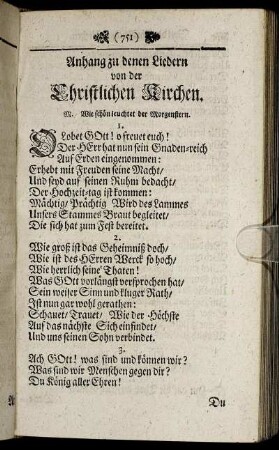 (751)
Anhang zu denen Liedern
von der
Christlichen Kirchen.
M. Wie schön leuchtet der Morgenstern.
1.
Lobet GOtt! o freuet euch!
Der HErr hat nun sein Gnaden-reich
Auf Erden eingenommen:
Erhebt mit Freuden seine Macht
Und seyd auf seinen Ruhm bedacht/
Der Hochzeit-tag ist kommen:
Mächtig/ Prächtig Wird des Lammes
Unsers Stammes Braut begleitet/
Die sich hat zum Fest bereitet.
2.
Wie groß ist das Geheimniß doch/
Wie ist des HErren Werck so hoch/
Wie herrlich seine Thaten!
Was GOtt vorlängst versprochen hat/
Sein weiser Sinn und kluger Rath/
Ist nun gar wohl gerathen:
Schauet/ Trauet/ Wie der Höchste
Auf das nächste Sich einfindet/
Und uns seinen Sohn verbindet.
3.
Ach GOtt! was sind und können wir?
Was sind wir Menschen gegen dir?
Du König aller Ehren!
Du